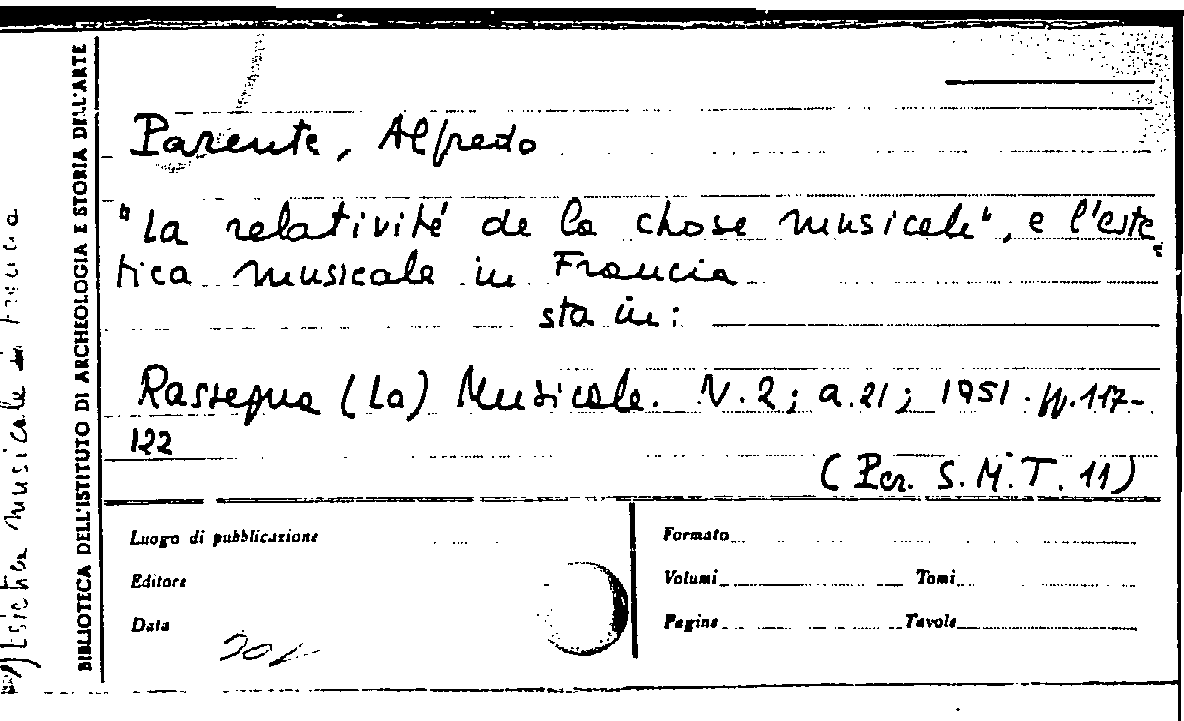 Parente, Alfredo
"La relativité de la chose musicale", e l'este
tica musicale in Francia
sta in:
Rassegna (La) Musicale. N.2; a.21; 1951. pp.117-
122
(Per. S.M.T. 11)
BIBLIOTECA DELL'ISTITUTO DI ARCHEOLOGIA E STORIA DELL'ARTE
Estetica musicale in Francia
Luogo di pubblicazione
Editore
Data
Formato
Volumi Tomi
Pagine Tavole